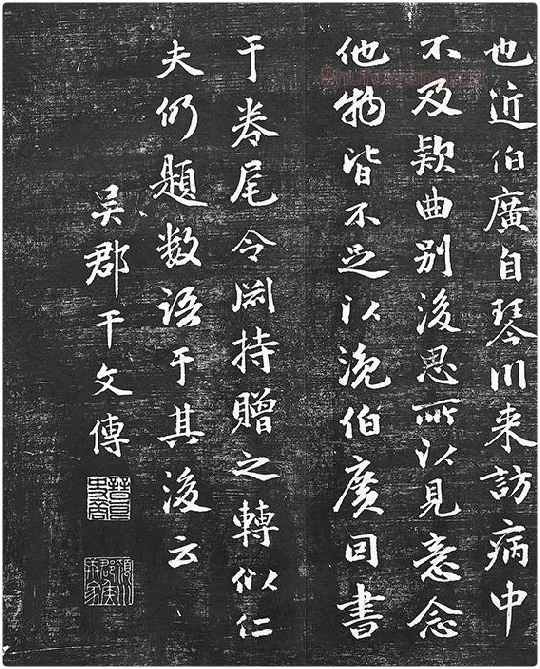 也近伯廣自琴川来訪病中
不及款曲别後思所以見意念
他物皆不足以浼伯廣回書
于卷尾令持贈之轉似仁
夫仍題数語于其後云
吳郡干文傳